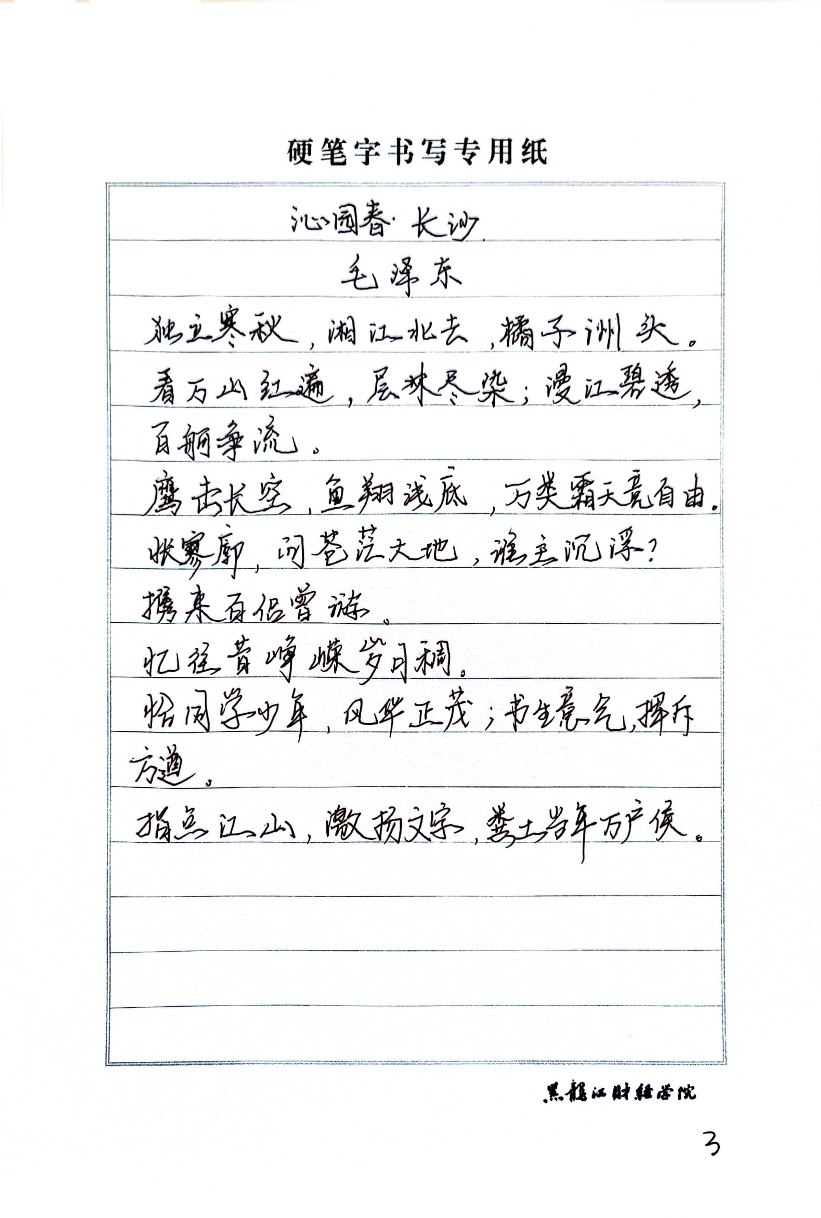 硬笔字书写专用纸
沁园春·长沙
毛泽东
独立寒秋,湘江北去,橘子洲头。
看万山红遍,层林尽染;漫江碧透,
百舸争流。
鹰击长空,鱼翔浅底,万类霜天竞自由。
怅寥廓,问苍茫大地,谁主沉浮?
携来百侣曾游。
忆往昔峥嵘岁月稠。
恰同学少年,风华正茂;书生意气,挥斥
方遒。
指点江山,激扬文字,粪土当年万户侯。
黑龍江財經學院
3